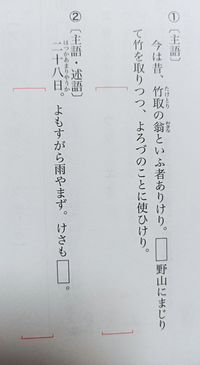 ① 〔主語〕
今は昔、竹取の翁といふ者ありけり。□野山にまじり
て竹を取りつつ、よろづのことに使ひけり。
② 〔主語・述語〕
二十八日。よもすがら雨やまず。けさも□。